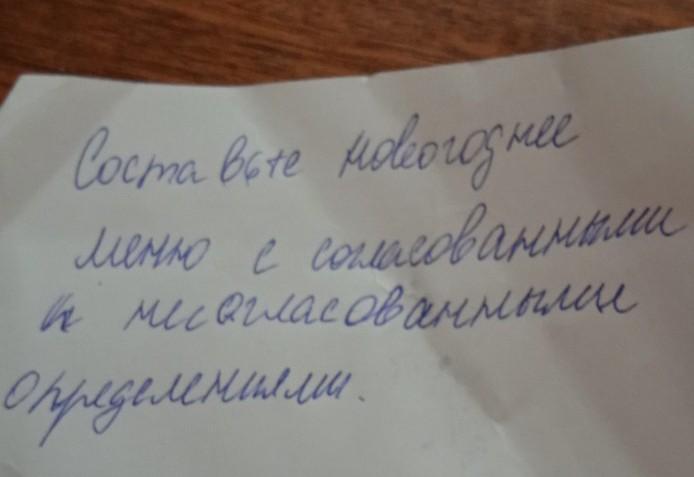 Составьте новогоднее
меню с согласованными
и несогласованными
определениями.